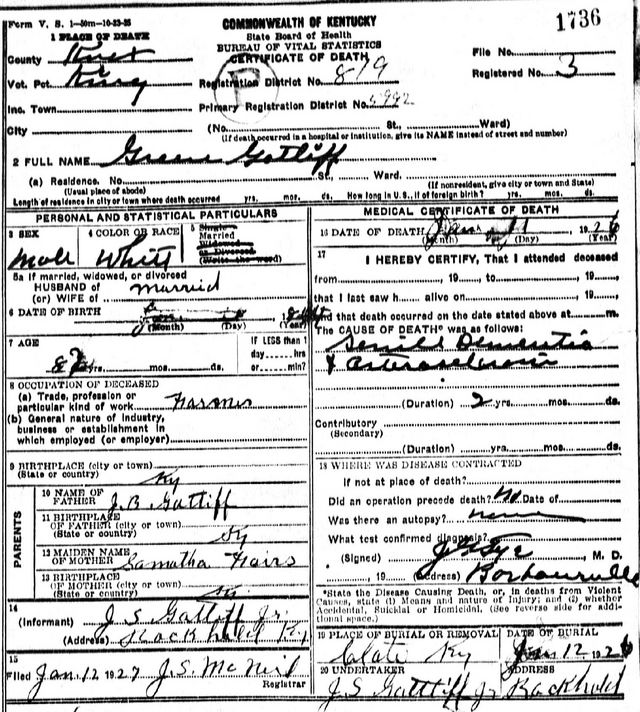 Form V. S. 1-50m-10-23-25
COMMONWEALTH OF KENTUCKY
State Board of Health
BUREAU OF VITAL STATISTICS
CERTIFICATE OF DEATH
1736
1 PLACE OF DEATH
County Knox
Vot. Pct. King
Registration District No. 819
File No.
Registered No. 3
Inc. Town
Primary Registration District No. 5992
City (No. St., Ward)
(If death occurred in a hospital or institution, give its NAME instead of street and number)
2 FULL NAME Greene Gatliff
(a) Residence. No. St., Ward.
(Usual place of abode) (If nonresident, give city or town and State)
Length of residence in city or town where death occurred yrs. mos. ds. How long in U. S., if of foreign birth? yrs. mos. ds.
PERSONAL AND STATISTICAL PARTICULARS
3 SEX
Male
4 COLOR OR RACE
White
5 Single
Married
Widowed
or Divorced
(Write the word)
5a If married, widowed, or divorced
HUSBAND of
(or) WIFE of Married
6 DATE OF BIRTH
(Month) (Day) (Year)
7 AGE
yrs. mos. ds.
IF LESS than 1
day hrs
or min?
8 OCCUPATION OF DECEASED
(a) Trade, profession or
particular kind of work Farmer
(b) General nature of industry,
business or establishment in
which employed (or employer)
9 BIRTHPLACE (city or town)
(State or country) Ky
PARENTS
10 NAME OF
FATHER J. B. Gatliff
11 BIRTHPLACE
OF FATHER (city or town)
(State or country) Ky
12 MAIDEN NAME
OF MOTHER Samatha Fairs
13 BIRTHPLACE
OF MOTHER (city or town)
(State or country) Ky
14
(Informant) J. S. Gatliff Jr.
(Address) Rockhold Ky
15
Filed Jan. 12 1927 J. S. McNeil
Registrar
MEDICAL CERTIFICATE OF DEATH
16 DATE OF DEATH Jan 1926
(Month) (Day) (Year)
17
I HEREBY CERTIFY, That I attended deceased
from , 19 , to , 19 ,
that I last saw h alive on , 19 ,
and that death occurred on the date stated above at m.
The CAUSE OF DEATH* was as follows:
Senile Dementia
(Duration) 2 yrs. mos. ds.
Contributory
(Secondary)
(Duration) yrs. mos. ds.
18 WHERE WAS DISEASE CONTRACTED
If not at place of death?
Did an operation precede death? No Date of
Was there an autopsy? none
What test confirmed diagnosis?
(Signed) J S Tye M. D.
, 19 (Address) Barbourville
*State the Disease Causing Death, or, in deaths from Violent
Causes, state (1) Means and nature of Injury; and (2) whether
Accidental, Suicidal or Homicidal. (See reverse side for addi-
tional space.)
19 PLACE OF BURIAL OR REMOVAL
Clate Ky
DATE OF BURIAL
Jan 12 1926
20 UNDERTAKER
J S Gatliff Jr
ADDRESS
Rockhold